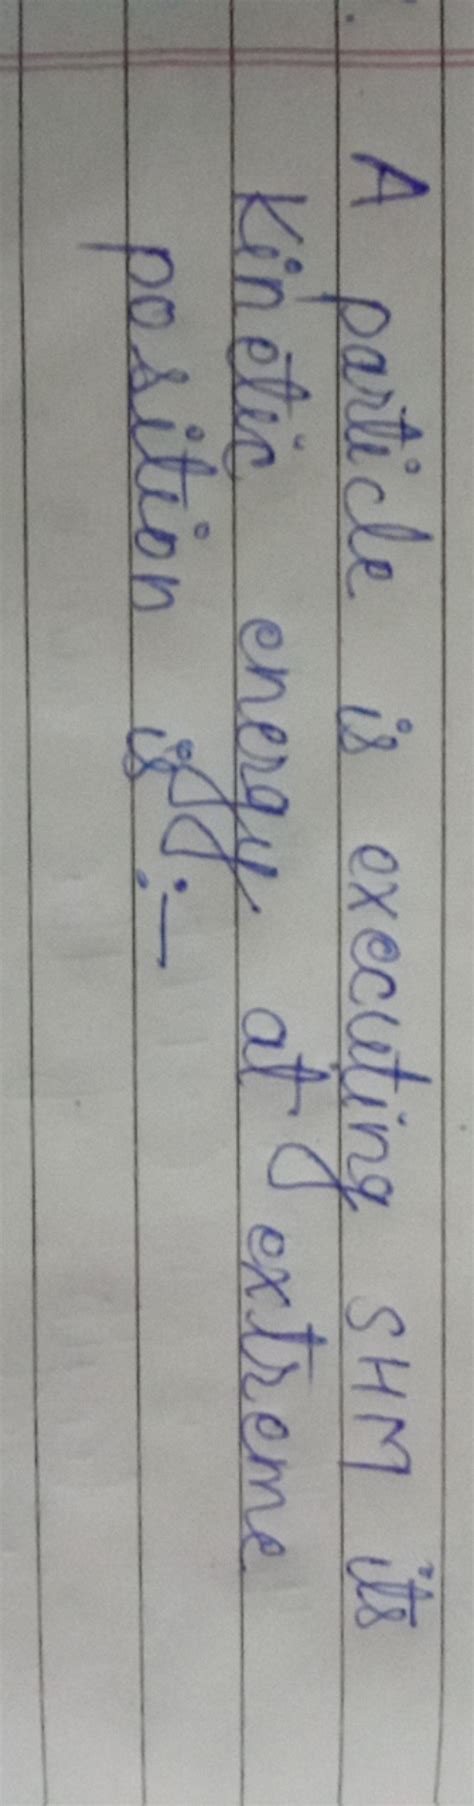 A particle is executing SHM its
Kinetic energy at extreme
position is :-